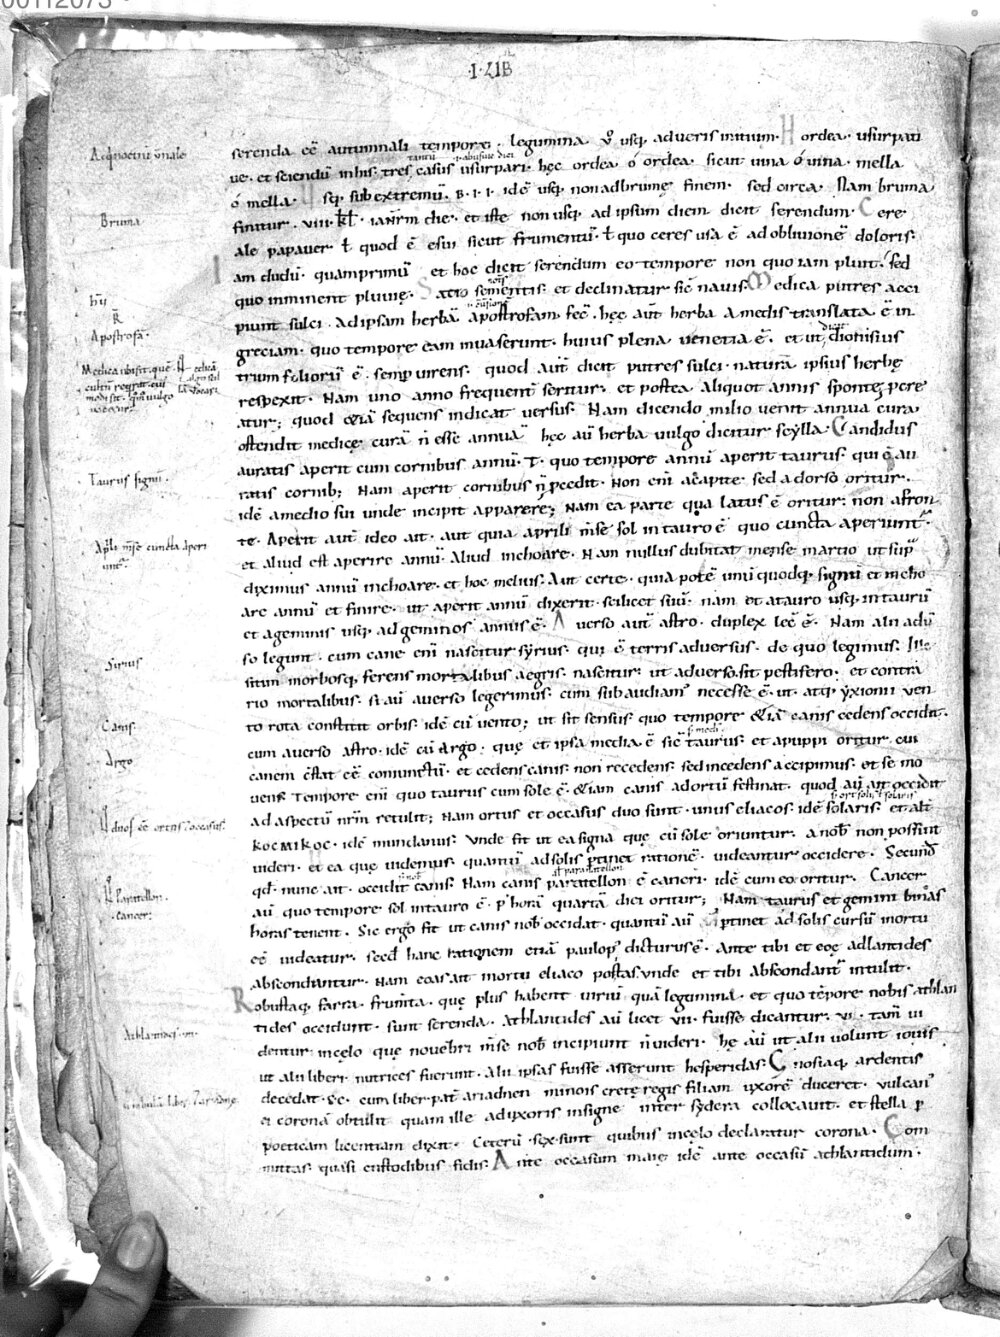 00112073
·I· LIB
Aeqnoctiū ũnale
serenda eē autumnali tempore· legumina ů usq; adueris initium· Hordea· usurpati
tantū · abusiue dici
ue· et sciendū inhis· tres casus usurpari· hęc ordea ó ordea· sicut uina ó uina· mella
ó mella· Vsq; sub extremū· B·I·I· idē usq; non adbrumę finem· sed circa· Nam bruma
Bruma
finitur· VIII· kł· ianr̄m die· et iste non usq; ad ipsum diem dicit serendum· Cere
ale papauer ł quod ē esui sicut frumentū· ł quo ceres usa ē ad obliuionē doloris·
Iam dudū· quamprimū· et hoc dicit serendum eo tempore non quo iam pluit· sed
quo imminent pluuię· Satio sementis· et declinatur sic̄ nauis· Medica putres acci
piunt sulci· Ad ipsam herbā apostrofam fec̄· hęc aūt herba a medis translata ē in
Apostrofā·
greciam· quo tempore eam inuaserunt· huius plena uenetia ē· et ut dicit dionisius
trum foliorū ē· semp̄ uirens· quod aūt dicit putres sulci· naturā ipsius herbę
respexit· Nam uno anno frequenť seritur· et postea aliquot annis sponte p̱cre
atur; quod &iā sequens indicat uersus· Nam dicendo milio uenit annua cura
ostendit medicę curā ñ esse annuā· hęc aū herba uulgo dicitur scylla· Candidus
auratis aperit cum cornibus annū· T· quo tempore annū aperit taurus· qui ē au
Taurus signū·
ratis cornib; Nam aperit cornibus ñ p̄cedit· Non enī acapite· sed a dorso oritur·
idē amedio sui unde incipit apparere; Nam ea parte qua latus ē oritur· non afron
te· Aperit aūt ideo ait· aut quia aprili m̄se sol in tauro ē quo cuncta aperiunť·
Apli m̄se cuncta aperi
unť·
et aliud est aperire annū· Aliud inchoare· Nam nullus dubitat mense martio ut sup̄
diximus annū inchoare· et hoc melius· Aut certe· quia potē unū quodq; signū et incho
are annū et finire· ut aperit annū dixerit· scilicet suū· nam et a tauro usq; in taurū
et ageminis usq; ad geminos annus ē· Auerso aūt astro· duplex lec̄ ē· Nam alii adū
Sirius
so legunt· cum cane enī nascitur syrius· qui ē terris aduersus· de quo legimus· Ille
sitim morbosq; ferens mortalibus aegris· nascitur· ut aduerso sit pestifero· et contra
rio mortalibus· si aū auerso legerimus· cum subaudiam' necesse ē· ut· atq; yxionii uen
Canis·
to rota constitit orbis· idē cū uento; ut sit sensus· quo tempore &iā canis cedens occidit·
cum auerso astro· idē cū Argo· quę et ipsa media ē sic̄ taurus· et apuppi oritur· cui
Argo
canem c̄stat eē coniunctū· et cedens canis· non recedens· sed incedens accipimus· et se mo
uens· Tempore enī quo taurus cum sole ē· &iam canis adortū festinat· quod aū ait occidit
ad aspectū nr̄m retulit; Nam ortus et occasus duo sunt· unus eliacos· idē solaris· et alt̄
duos eē ortus ⁊ occasus·
κοϲμικοϲ· idē mundanus· Vnde fit ut ea signa quę cū sole oriuntur· a nob̄ non possint
uideri· et ea que uidemus· quantū ad solis p̱tinet rationē· uideantur occidere· Secund̄
qd̄· nunc ait· occidit canis· Nam canis paratellon ē cancri· idē cum eo oritur· Cancer
Paratellon·
·cancer·
aū quo tempore sol in tauro ē· p' horā quartā diei oritur; Nam taurus et gemini binas
horas tenent· Sic ergo fit ut canis nob̄ occidat· quantū aū p̱tinet ad solis cursū mortu
eē uideatur· seed hanc rationem etiā paulop' dicturus ē· Ante tibi et eoę adlantides
abscondantur· Nam eoas ait mortu eliaco postas unde et tibi abscondanť intulit·
Robustaq; farra· frum̄ta· quę plus habent uiriū quā legumina· et quo tēpore nobis athlan
tides occidunt· sunt serenda· Athlantides aū licet VII· fuisse dicantur· VI· tam̄ ui
Athlantides·
dentur· incęlo quę nouēbri m̄se nob̄ incipiunt ñ uideri· hę aū ut alii uolunt iouis
ut alii liberi· nutrices fuerunt· Alii ipsas fuisse asserunt hesperidas· Cnosiaq; ardentis
decedat· &c· cum liber pať ariadnen minois cretę regis filiam uxorē duceret· uulcan'
ei coronā obtulit quam ille ad uxoris insigne inter sydera collocauit· et stella p̱
poeticam licentiam dixit· Ceterū· sex sunt quibus incęlo declaratur corona· Com
mittas· quasi custodibus fidis· Ante occasum maię idē ante occasū athlantidum·